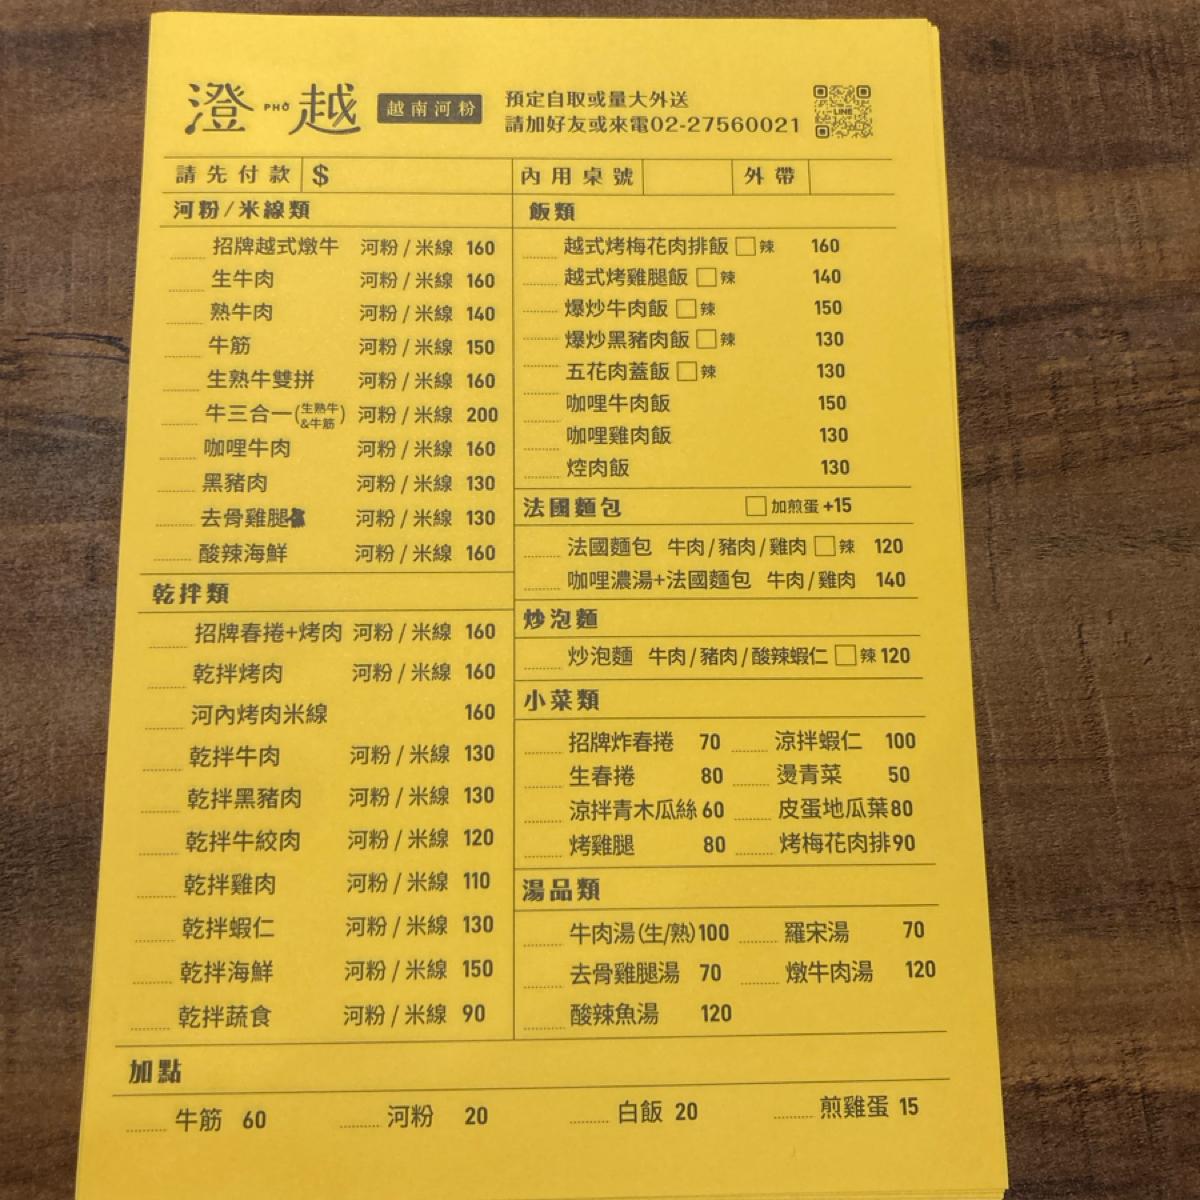 澄 PHỞ 越 越南河粉
預定自取或量大外送
請加好友或來電02-27560021
LINE
請先付款 $ 內用桌號 外帶
河粉/米線類
招牌越式燉牛 河粉/米線 160
生牛肉 河粉/米線 160
熟牛肉 河粉/米線 140
牛筋 河粉/米線 150
生熟牛雙拼 河粉/米線 160
牛三合一(生熟牛&牛筋) 河粉/米線 200
咖哩牛肉 河粉/米線 160
黑豬肉 河粉/米線 130
去骨雞腿 河粉/米線 130
酸辣海鮮 河粉/米線 160
乾拌類
招牌春捲+烤肉 河粉/米線 160
乾拌烤肉 河粉/米線 160
河內烤肉米線 160
乾拌牛肉 河粉/米線 130
乾拌黑豬肉 河粉/米線 130
乾拌牛絞肉 河粉/米線 120
乾拌雞肉 河粉/米線 110
乾拌蝦仁 河粉/米線 130
乾拌海鮮 河粉/米線 150
乾拌蔬食 河粉/米線 90
飯類
越式烤梅花肉排飯 □辣 160
越式烤雞腿飯 □辣 140
爆炒牛肉飯 □辣 150
爆炒黑豬肉飯 □辣 130
五花肉蓋飯 □辣 130
咖哩牛肉飯 150
咖哩雞肉飯 130
焢肉飯 130
法國麵包 □加煎蛋+15
法國麵包 牛肉/豬肉/雞肉 □辣 120
咖哩濃湯+法國麵包 牛肉/雞肉 140
炒泡麵
炒泡麵 牛肉/豬肉/酸辣蝦仁 □辣 120
小菜類
招牌炸春捲 70 涼拌蝦仁 100
生春捲 80 燙青菜 50
涼拌青木瓜絲 60 皮蛋地瓜葉 80
烤雞腿 80 烤梅花肉排 90
湯品類
牛肉湯(生/熟) 100 羅宋湯 70
去骨雞腿湯 70 燉牛肉湯 120
酸辣魚湯 120
加點
牛筋 60 河粉 20 白飯 20 煎雞蛋 15